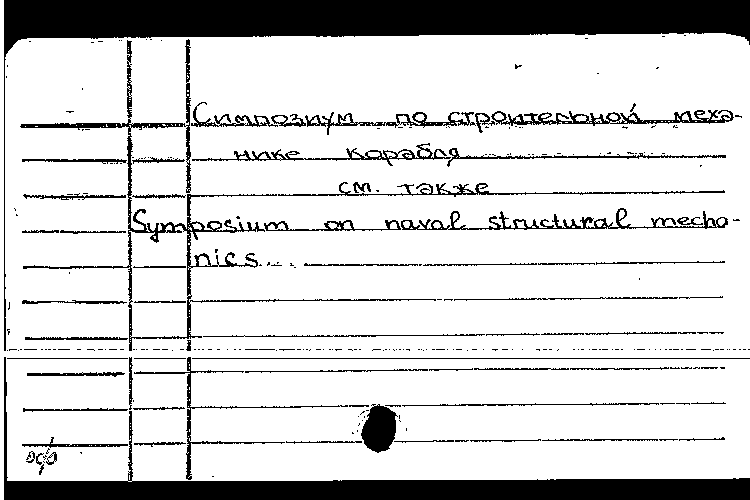 Симпозиум по строительной меха-
нике корабля
см. также
Symposium on naval structural mecha-
nics...